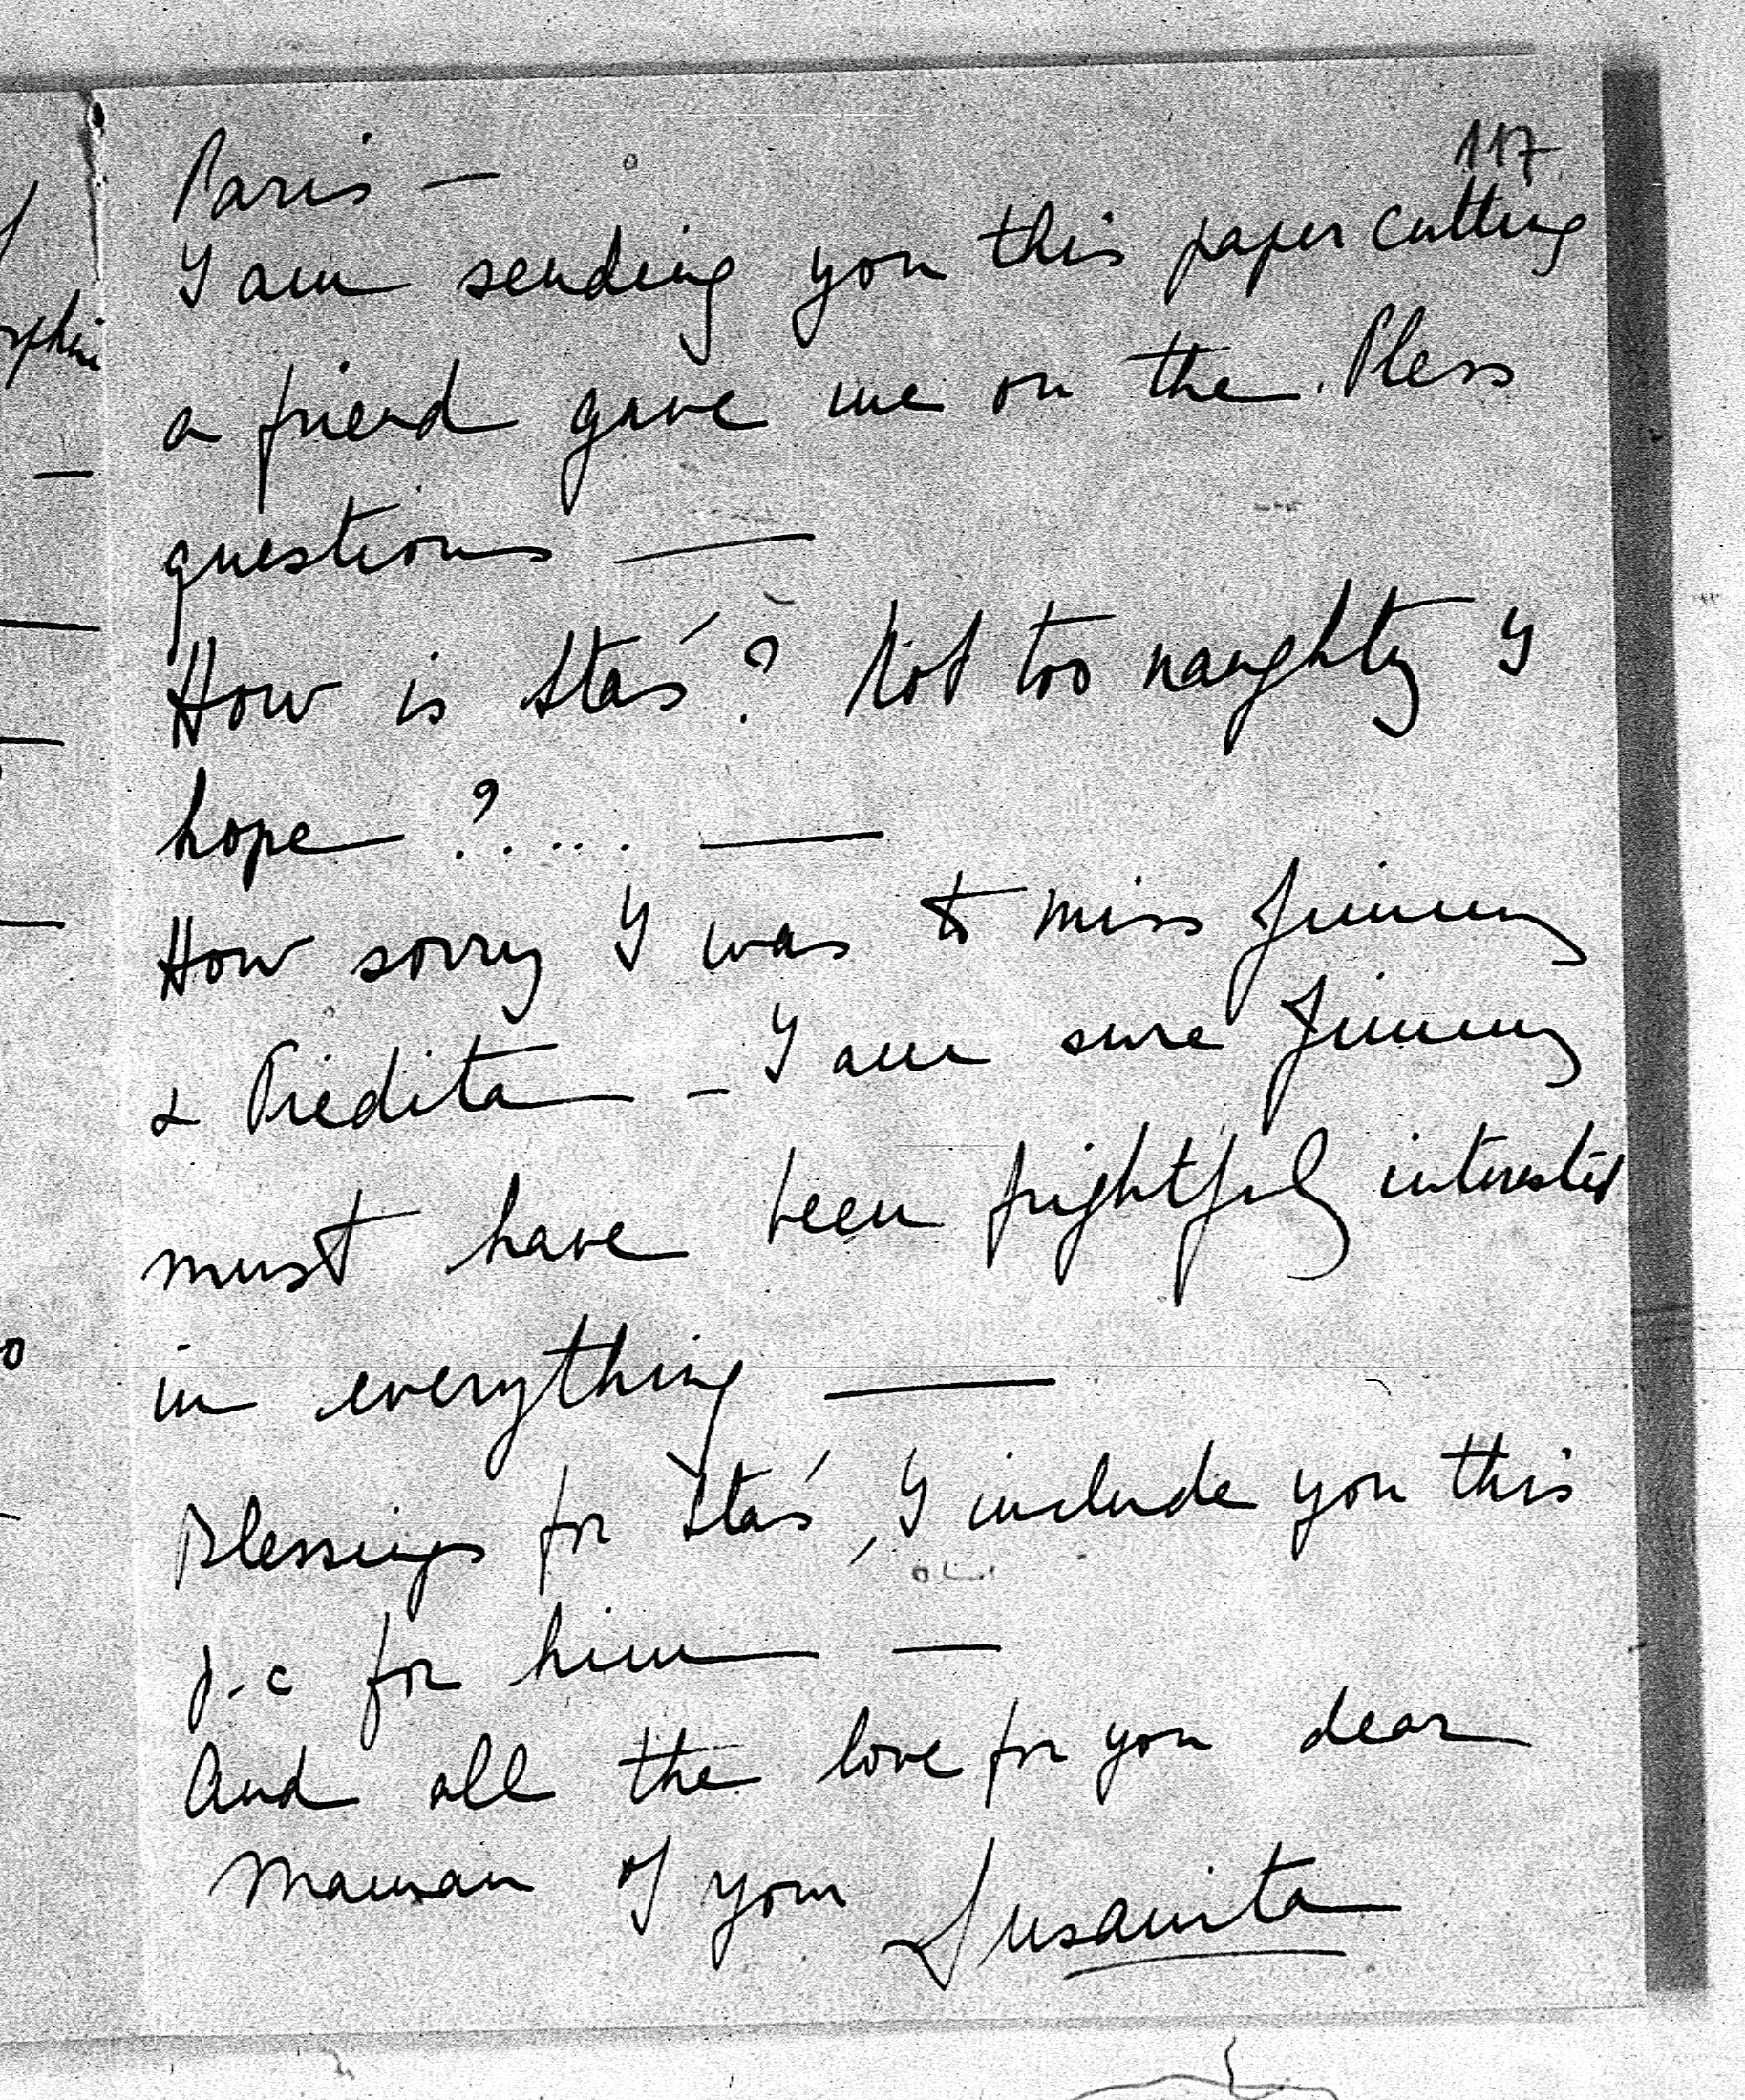 117
Paris —
I am sending you this paper cutting
a friend gave me on the Pless
questions —
How is Staś? Not too naughty I
hope ?..... —
How sorry I was to miss Jimmy
& Piedita — I am sure Jimmy
must have been frightful interested
in everything —
Blessings for Staś, I include you this
p.c for him —
And all the love for you dear
Maman of your Susanita